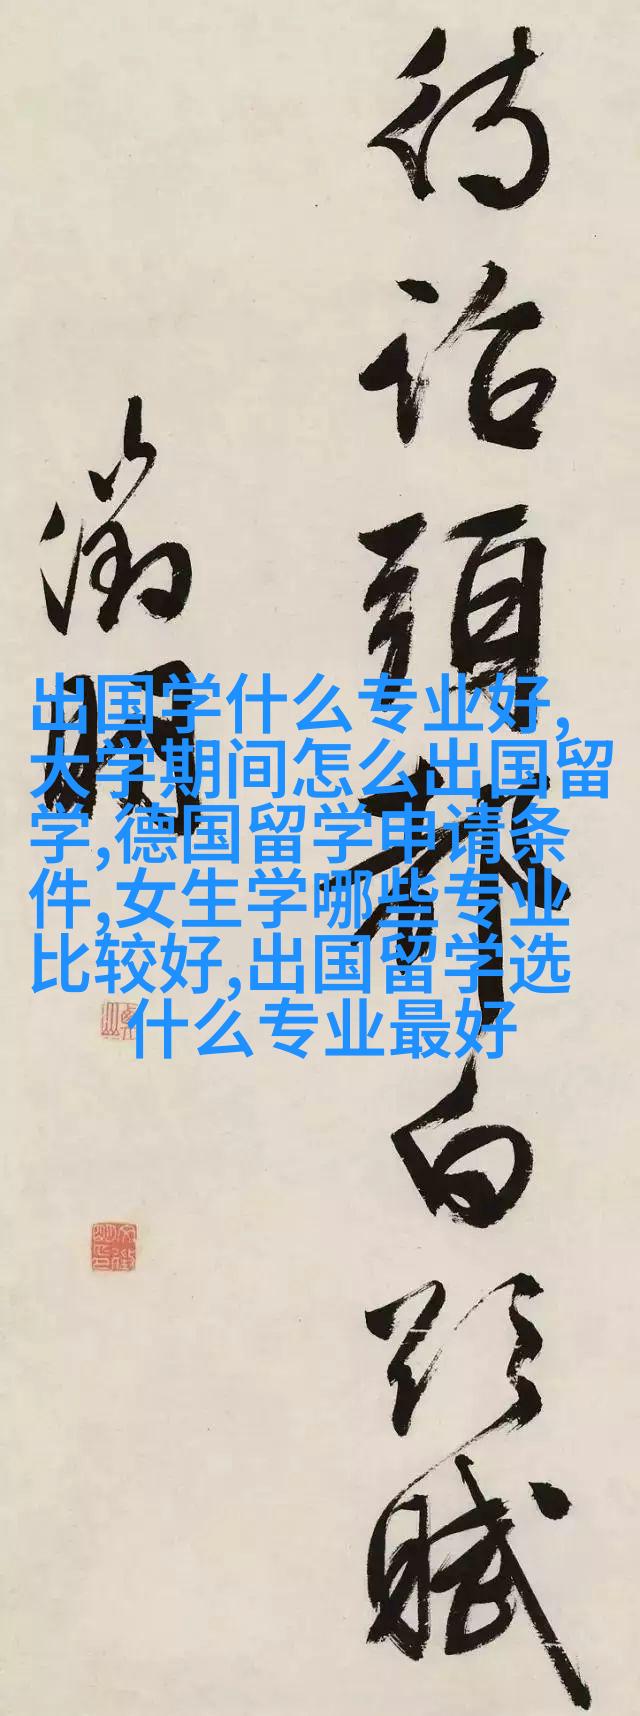 待诏頭都白頭賦
徵明
出国学什么专业好,
大学期间怎么出国留
学,德国留学申请条
件,女生学哪些专业
比较好,出国留学选
什么专业最好